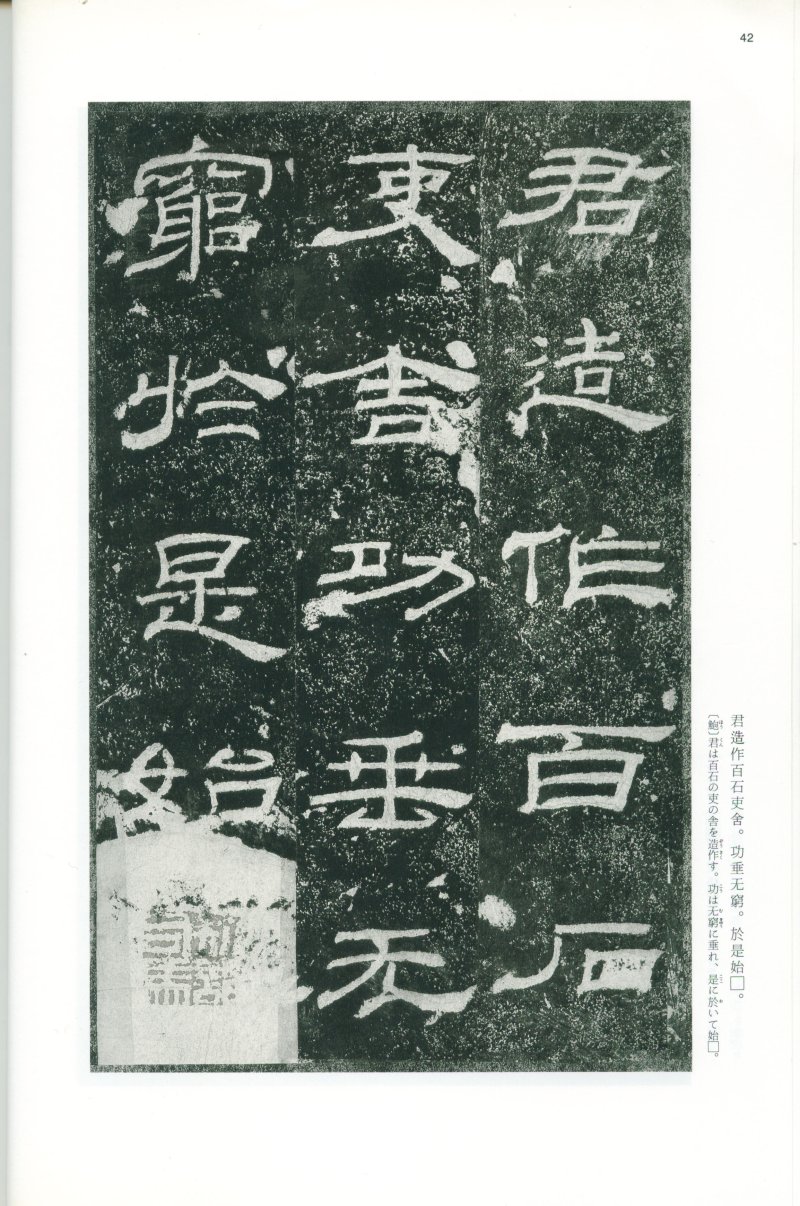 42
君造作百石
吏舍功垂无
窮於是始
君造作百石吏舍。功垂无窮。於是始□。
〔鮑〕君は百石の吏の舎を造作す。功は无窮に垂れ、是に於いて始□。